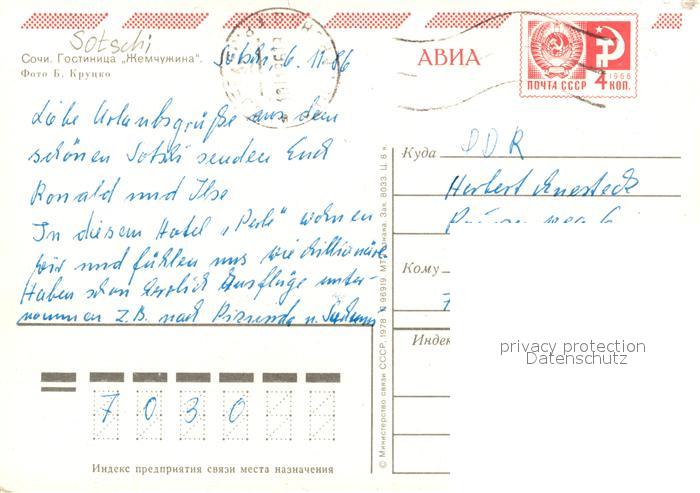 Sotschi
Сочи. Гостиница „Жемчужина".
Фото Б. Круцко
Sotschi 6. 11. 86
АВИА
1966
ПОЧТА СССР 4 КОП.
Liebe Urlaubsgrüße aus dem
schönen Sotschi senden Euch
Ronald und Ilse
In diesem Hotel „Perle" wohnen
wir und fühlen uns wie Millionäre.
Haben schon herrlich Ausflüge unter-
nommen z.B. nach Pizunda u.
Куда DDR
Herbert
Кому
7
Индек
privacy protection
Datenschutz
7 0 3 0
Индекс предприятия связи места назначения
© Министерство связи СССР, 1978 96919. МТ Гознака. Зак. 8033. Ц. 8 к.